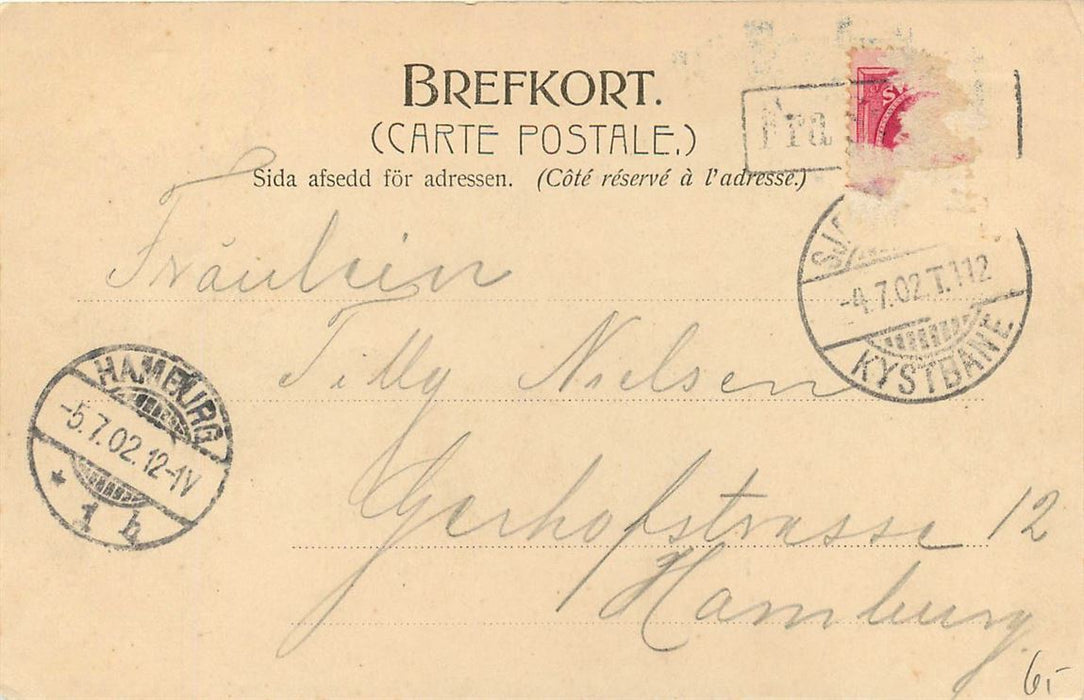 BREFKORT.
(CARTE POSTALE.)
Sida afsedd för adressen. (Côté réservé à l'adresse.)
Fra
SJ
-4.7.02.T.112
KYSTBANE
Fräulein
Tilly Nielsen
Gerhofstrasse 12
Hamburg
HAMBURG
-5.7.02.12-1V
* 1 h
6,-